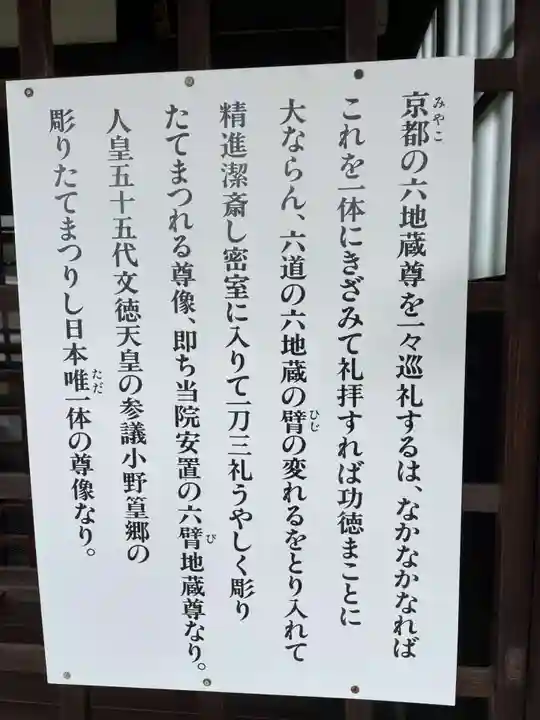 京都の六地蔵尊を一々巡礼するは、なかなかなれば
これを一体にきざみて礼拝すれば功徳まことに
大ならん、六道の六地蔵の臂の変れるをとり入れて
精進潔斎し密室に入りて一刀三礼うやしく彫り
たてまつれる尊像、即ち当院安置の六臂地蔵尊なり。
人皇五十五代文徳天皇の参議小野篁郷の
彫りたてまつりし日本唯一体の尊像なり。